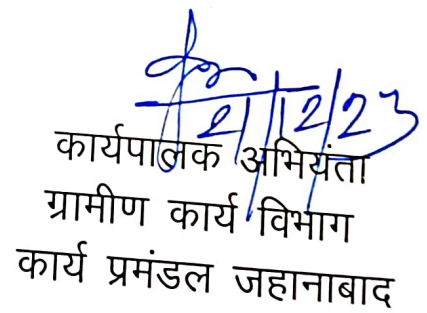 21/12/23
कार्यपालक अभियंता
ग्रामीण कार्य विभाग
कार्य प्रमंडल जहानाबाद